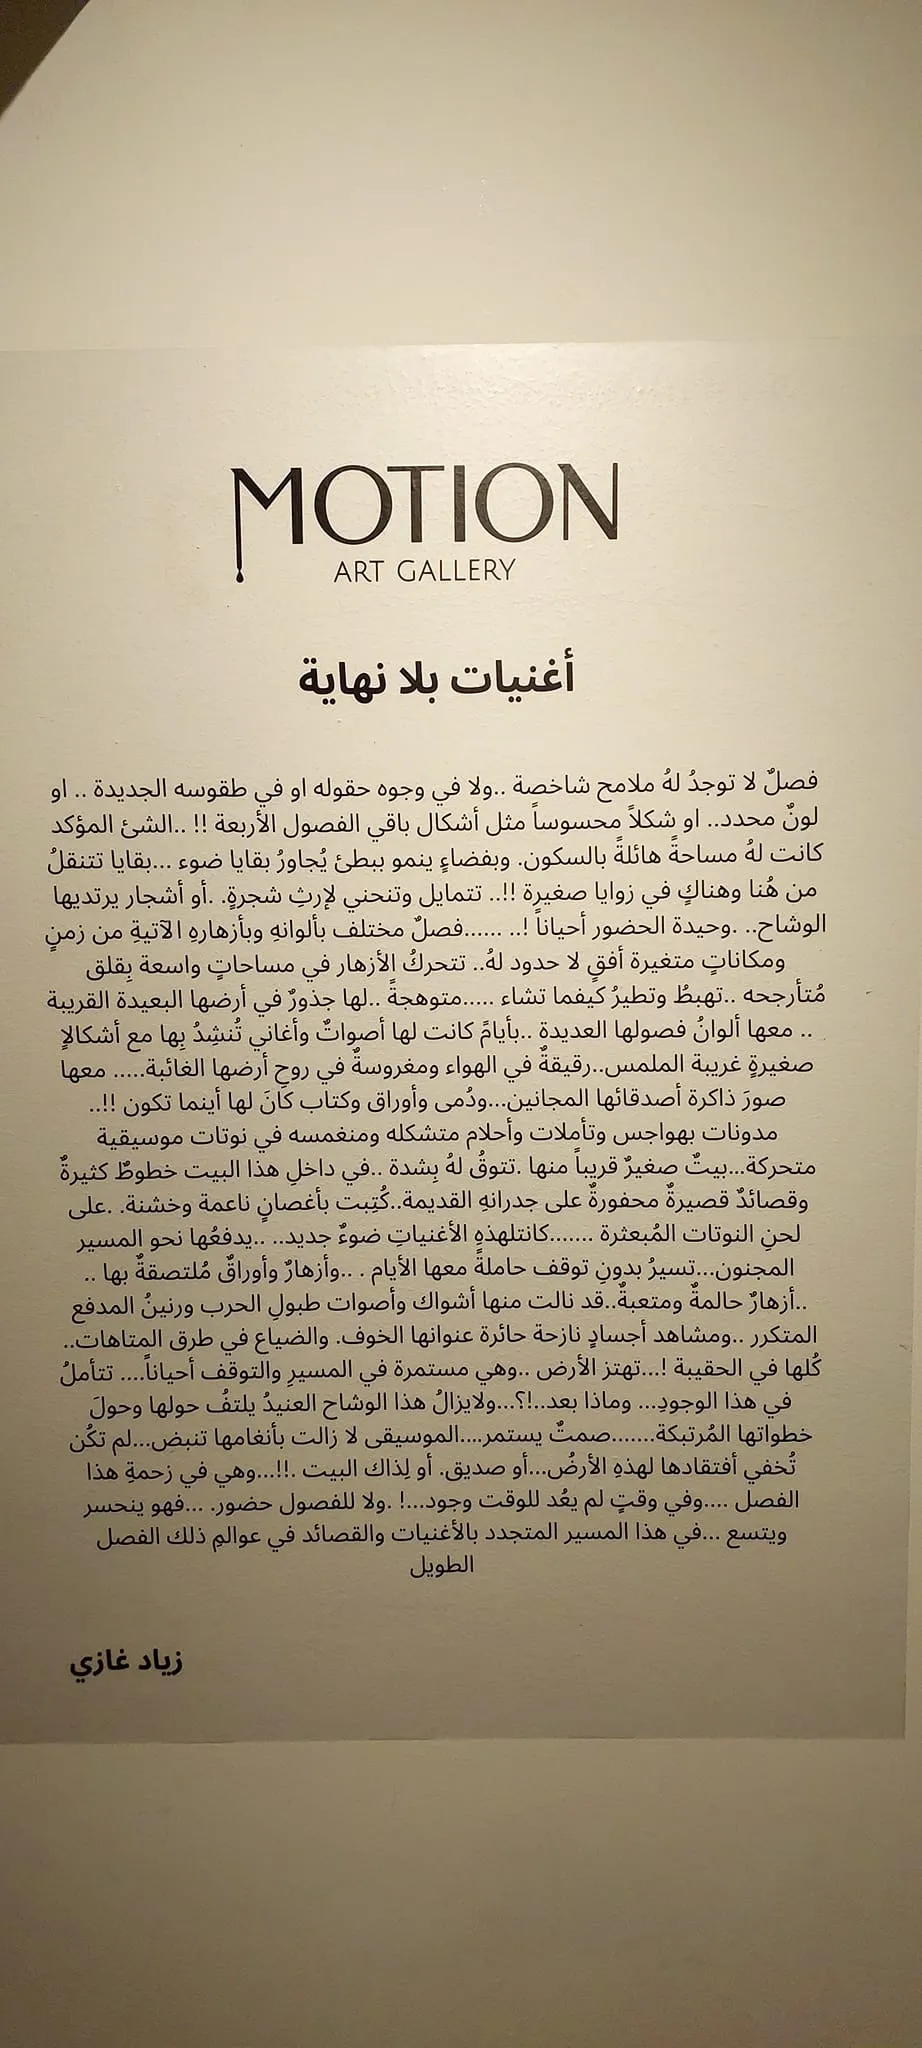 MOTION
ART GALLERY
أغنيات بلا نهاية
فصلٌ لا توجدُ لهُ ملامح شاخصة ..ولا في وجوه حقوله او في طقوسه الجديدة .. او
لونٌ محدد.. او شكلاً محسوساً مثل أشكال باقي الفصول الأربعة !! ..الشئ المؤكد
كانت لهُ مساحةً هائلةً بالسكون. وبفضاءٍ ينمو ببطئ يُجاورُ بقايا ضوء ...بقايا تتنقلُ
من هُنا وهناكٍ في زوايا صغيرة !!.. تتمايل وتنحني لإرثِ شجرةٍ. .أو أشجار يرتديها
الوشاح.. .وحيدة الحضور أحياناً !.. ......فصلٌ مختلف بألوانهِ وبأزهارهِ الآتيةِ من زمنٍ
ومكاناتٍ متغيرة أفقٍ لا حدود لهُ.. تتحركُ الأزهار في مساحاتٍ واسعة بِقلق
مُتأرجحه ..تهبطُ وتطيرُ كيفما تشاء .....متوهجةً ..لها جذورٌ في أرضها البعيدة القريبة
.. معها ألوانُ فصولها العديدة ..بأيامً كانت لها أصواتٌ وأغاني تُنشِدُ بِها مع أشكالاٍ
صغيرةٍ غريبة الملمس..رقيقةٌ في الهواء ومغروسةٌ في روحِ أرضها الغائبة..... معها
صورَ ذاكرة أصدقائها المجانين...ودُمى وأوراق وكتاب كانَ لها أينما تكون !!..
مدونات بهواجس وتأملات وأحلام متشكله ومنغمسه في نوتات موسيقية
متحركة...بيتٌ صغيرٌ قريباً منها .تتوقُ لهُ بِشدة ..في داخلِ هذا البيت خطوطٌ كثيرةٌ
وقصائدٌ قصيرةٌ محفورةٌ على جدرانهِ القديمة..كُتِبت بأغصانٍ ناعمة وخشنة. .على
لحنِ النوتات المُبعثرة .......كانتلهذهِ الأغنياتِ ضوءٌ جديد.. ..يدفعُها نحو المسير
المجنون...تسيرُ بدونِ توقف حاملةً معها الأيام . ..وأزهارٌ وأوراقٌ مُلتصقةٌ بها ..
..أزهارٌ حالمةٌ ومتعبةٌ..قد نالت منها أشواك وأصوات طبولِ الحرب ورنينُ المدفع
المتكرر ..ومشاهد أجسادٍ نازحة حائرة عنوانها الخوف. والضياع في طرق المتاهات..
كُلها في الحقيبة !...تهتز الأرض ..وهي مستمرة في المسيرِ والتوقف أحياناً.... تتأملُ
في هذا الوجودِ... وماذا بعد..!؟...ولايزالُ هذا الوشاح العنيدُ يلتفُ حولها وحولَ
خطواتها المُرتبكة.......صمتٌ يستمر....الموسيقى لا زالت بأنغامها تنبض...لم تكُن
تُخفي أفتقادها لهذهِ الأرضُ...أو صديق. أو لِذاك البيت .!!...وهي في زحمةِ هذا
الفصل ....وفي وقتٍ لم يعُد للوقت وجود...! .ولا للفصول حضور. ...فهو ينحسر
ويتسع ...في هذا المسير المتجدد بالأغنيات والقصائد في عوالمِ ذلك الفصل
الطويل
زياد غازي